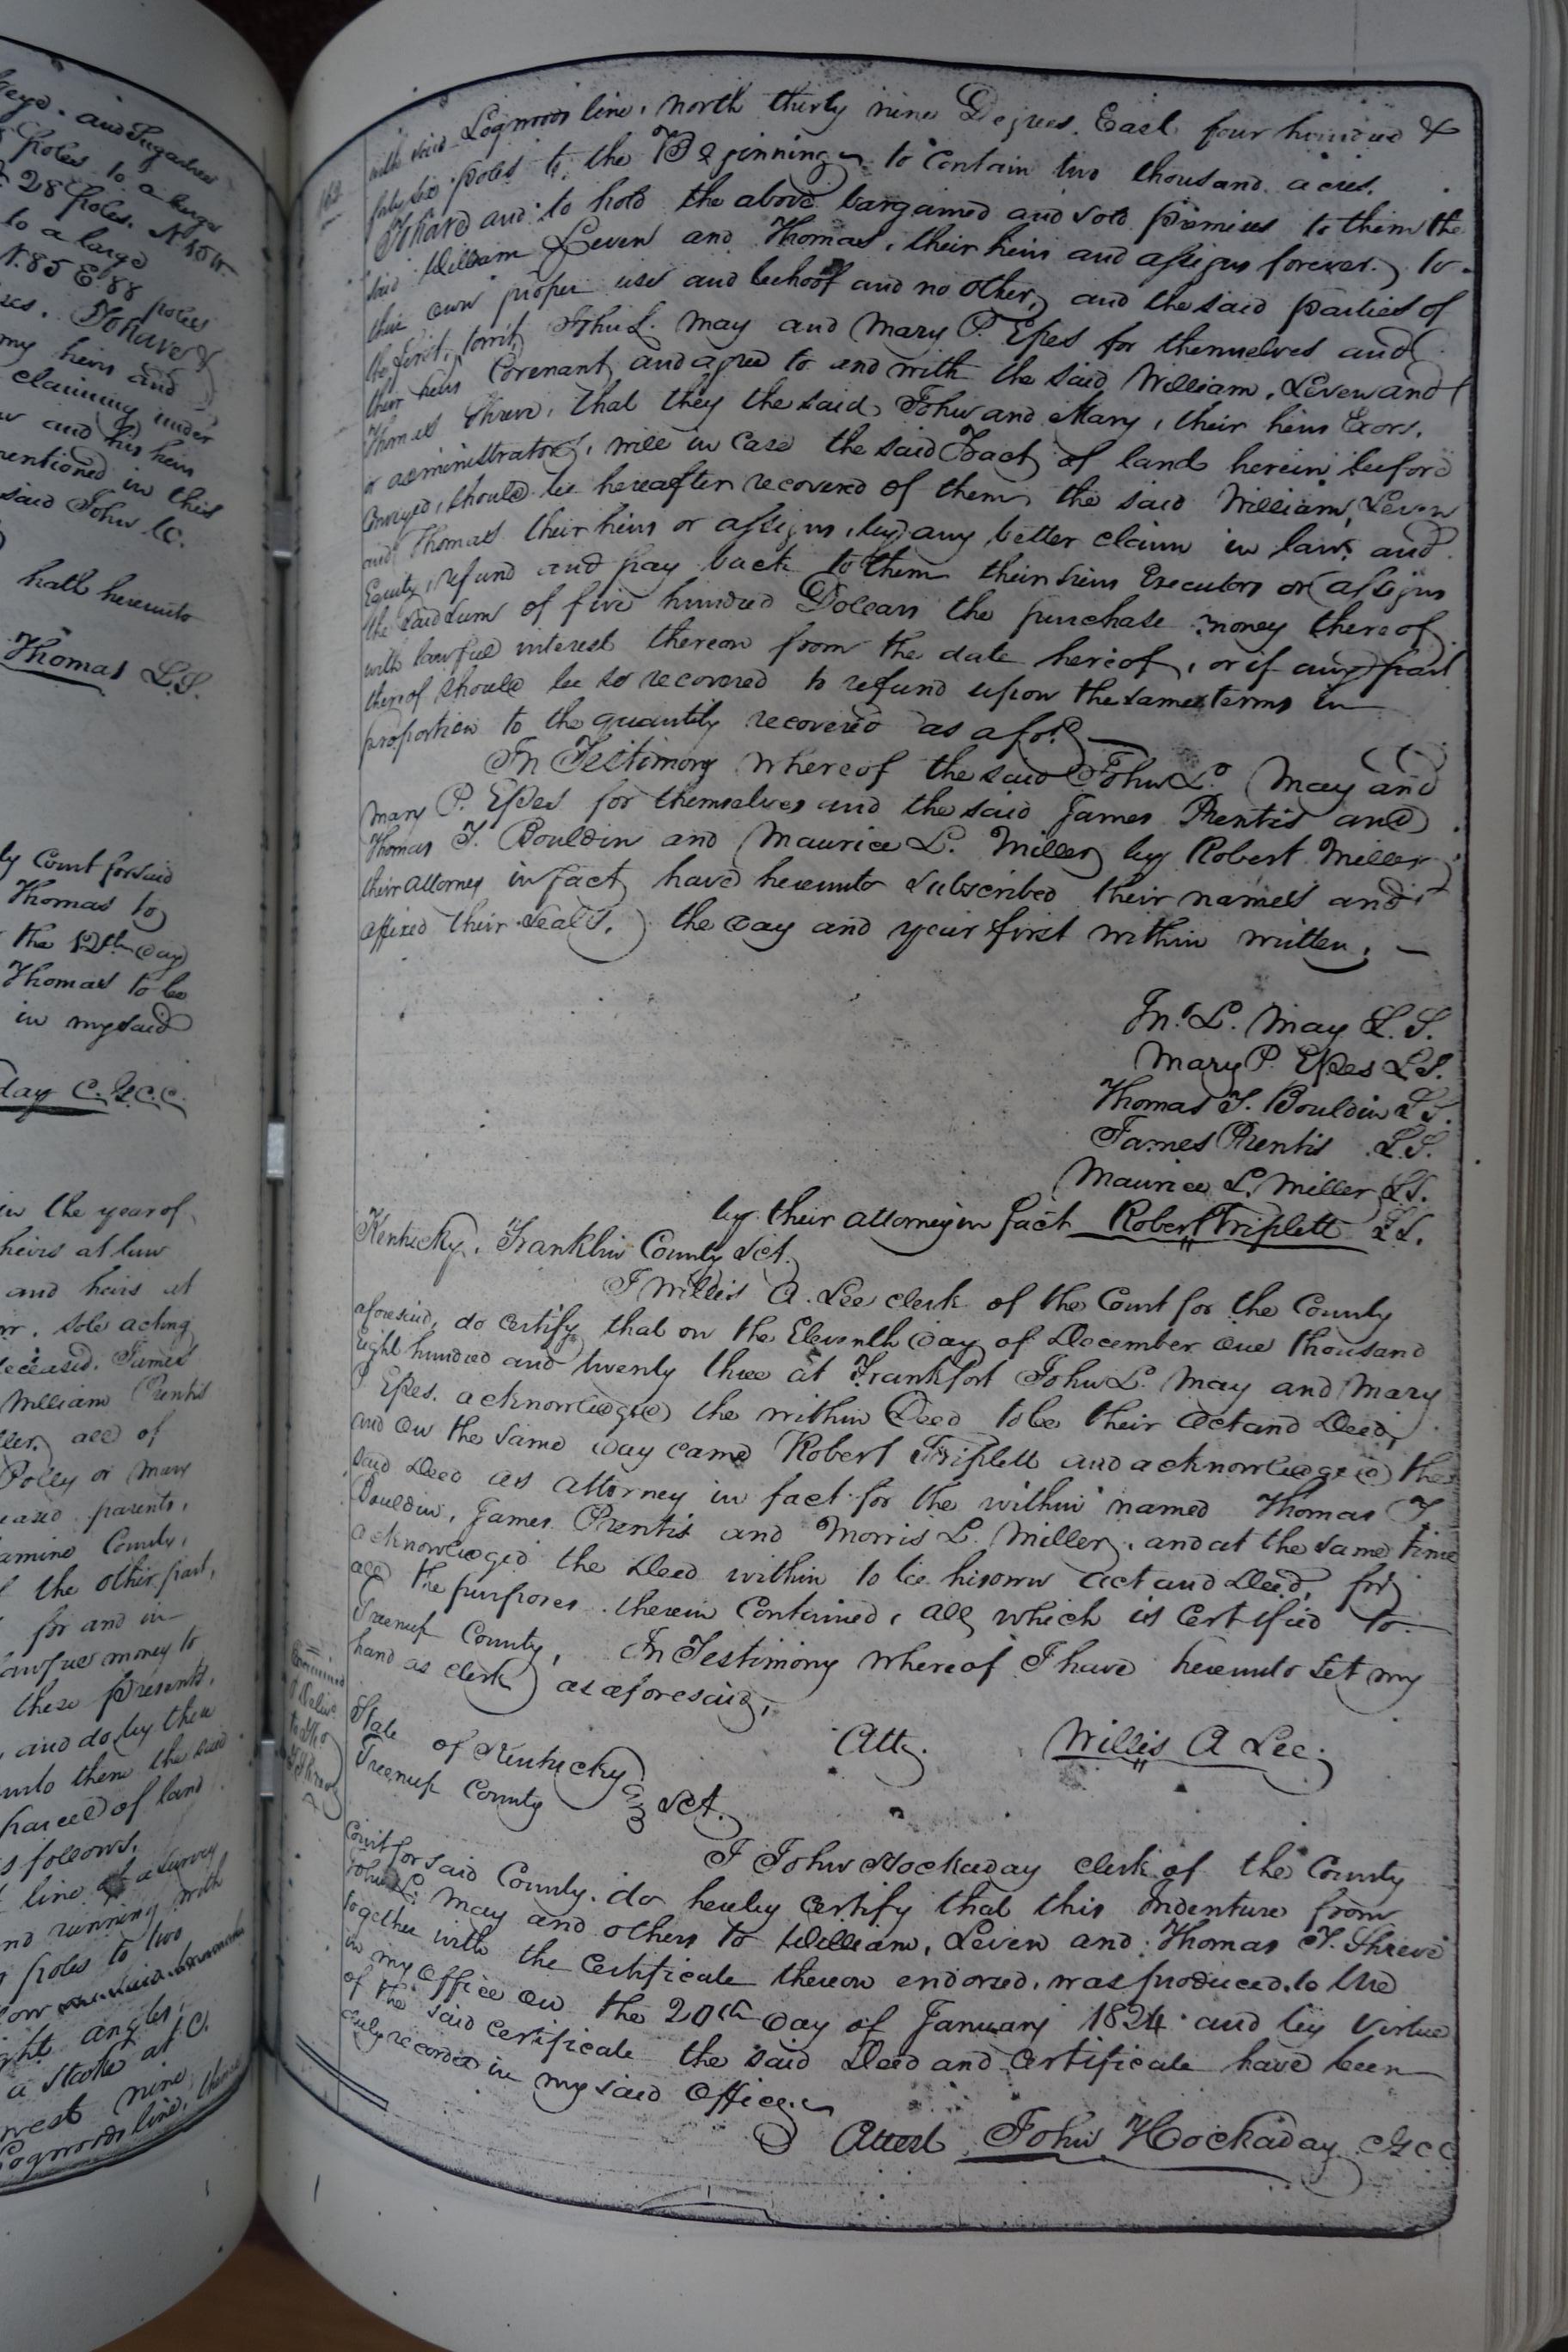 Keys. and Sugartree
poles to a large
28 poles. N 45 W
to a large
N. 85 E. 88 poles
To have &
my heirs and
claiming under
and his heirs
mentioned in this
said John &c.
hath hereunto
Thomas L.S.
ly Court for said
Thomas to
the 12th day
Thomas to be
in my said
day C.G.C.C.
in the year of
heirs at law
and heirs at
sole acting
deceased. James
William Prentis
all of
Polly or Mary
parents,
County,
the other part,
for and in
lawfull money to
these presents,
and do by these
unto them the said
parcel of land
as follows.
line of a survey
and running with
poles to two
right angles,
a stake at
west nine
Logwoods line, thence
162
with said Logwoods line, north thirty nine Degrees East four hundred &
forty six poles to the Beginning to contain two thousand acres.
To have and to hold the above bargained and sold premises to them the
said William Leven and Thomas, their heirs and assigns forever, to
their own proper use and behoof and no other, and the said parties of
the first part, John L. May and Mary P. Epes for themselves and
their heirs Covenant and agree to and with the said William, Leven and
Thomas Shreve, that they the said John and Mary, their heirs Exors.
or administrators, will in case the said Tract of land herein before
Conveyed, should be hereafter recovered of them the said William, Leven
and Thomas their heirs or assigns, by any better claim in law and
Equity, refund and pay back to them their heirs Executors or assigns
the said sum of five hundred Dollars the purchase money thereof
with lawful interest thereon from the date hereof, or if any part
thereof should be so recovered to refund upon the same terms in
proportion to the quantity recovered as afsd.
In Testimony whereof the said John L. May and
Mary P. Epes for themselves and the said James Prentis and
Thomas T. Bouldin and Maurice L. Miller by Robert Miller
their attorney in fact have hereunto subscribed their names and
affixed their seals, the day and year first within written.
Jno. L. May L.S.
Mary P. Epes L.S.
Thomas T. Bouldin L.S.
James Prentis L.S.
Maurice L. Miller L.S.
by their attorney in fact Robert Triplett L.S.
Kentucky, Franklin County Sct.
I Willis A. Lee clerk of the Court for the County
aforesaid, do certify that on the Eleventh day of December one thousand
eight hundred and twenty three at Frankfort John L. May and Mary
P. Epes. acknowledged the within Deed to be their act and Deed,
and on the same day came Robert Triplett and acknowledged the
said Deed as attorney in fact for the within named Thomas T
Bouldin, James Prentis and Morris L. Miller, and at the same time
acknowledged the Deed within to be his own act and Deed, for
all the purposes therein contained, all which is Certified to
Greenup County, In Testimony whereof I have hereunto set my
hand as clerk as aforesaid,
Att. Willis A Lee.
Examined
& Deliv.
to Tho
T Shreve
State of Kentucky
Greenup County Sct.
I John Hockaday clerk of the County
Court for said County, do hereby certify that this Indenture from
John L. May and others to William, Leven and Thomas T. Shreve
together with the Certificate thereon endorsed, was produced to me
in my office on the 20th day of January 1824 and by virtue
of the said certificate the said Deed and certificate have been
duly recorded in my said office.
Attest John Hockaday C G C C